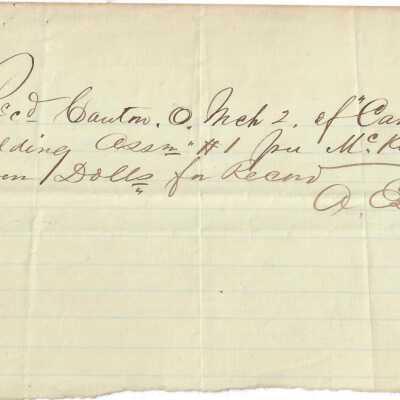 Recd Canton. O. Mch 2. of "Can
lding Assn" #1 per McK
Dolls for Record
A. E